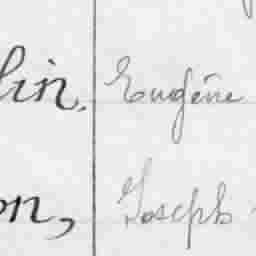 lin, Eugène
on, Joseph